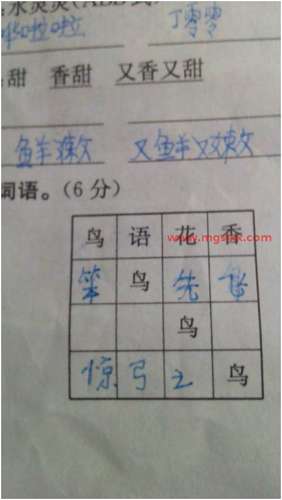 水灵灵(ABB式
啦啦 丁零零
甜 香甜 又香又甜
鲜嫩 又鲜又嫩
词语。(6分)
鸟 语 花 香
www.mgswx.com
笨 鸟 先 飞
鸟
惊 弓 之 鸟